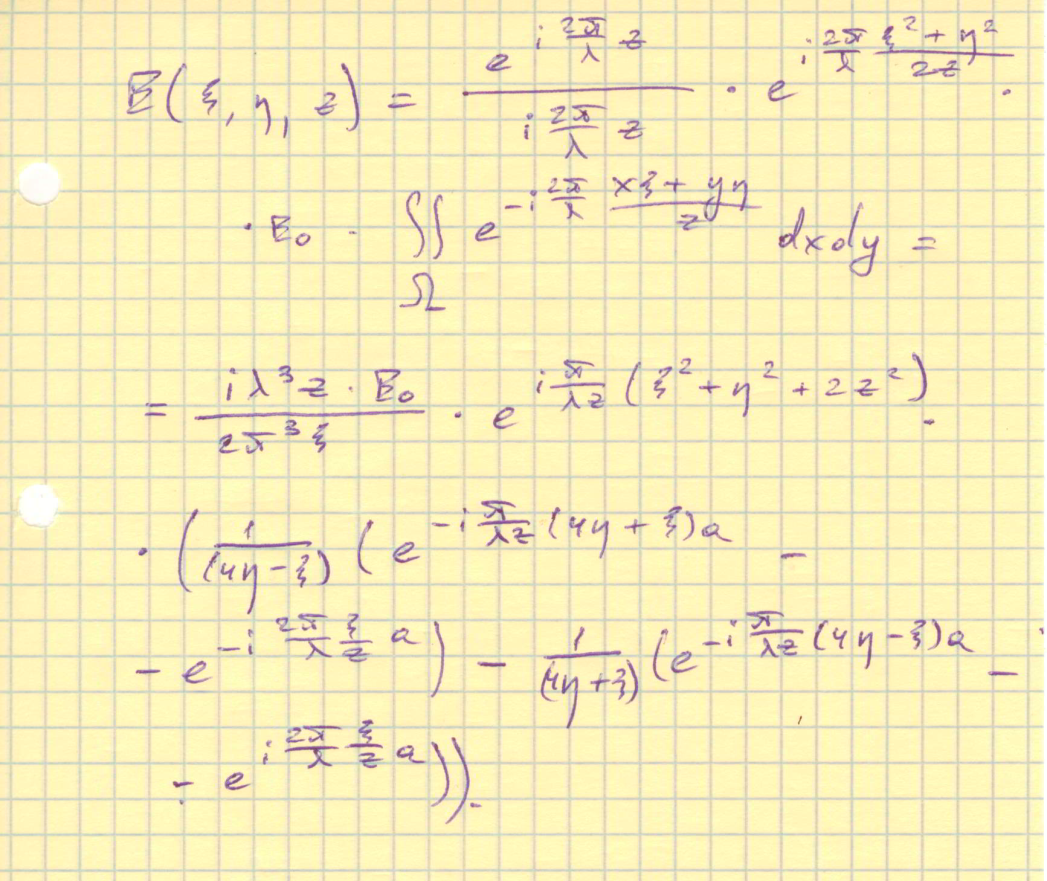 E(ξ, η, z) = \frac{e^{i \frac{2π}{λ} z}}{i \frac{2π}{λ} z} · e^{i \frac{2π}{λ} \frac{ξ^2 + η^2}{2z}} ·
· E_0 · \iint_Ω e^{-i \frac{2π}{λ} \frac{xξ + yη}{z}} dxdy =
= \frac{i λ^3 z · E_0}{2π^3 ξ} · e^{i \frac{π}{λz} (ξ^2 + η^2 + 2z^2)} ·
· (\frac{1}{(4η - ξ)} (e^{-i \frac{π}{λz} (4η + ξ)a} -
- e^{-i \frac{2π}{λ} \frac{ξ}{z} a}) - \frac{1}{(4η + ξ)} (e^{-i \frac{π}{λz} (4η - ξ)a} -
- e^{i \frac{2π}{λ} \frac{ξ}{z} a})).